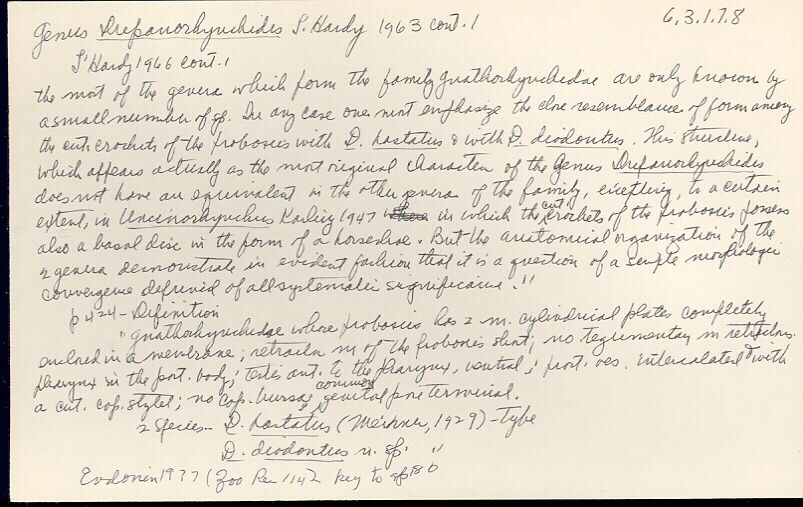 Genus Drepanorhynchides S. Hardy 1963 cont. 1
6.3.1.7.8
S'Hardy 1966 cont. 1
the most of the genera which form the family Gnathorhynchidae are only known by
a small number of sp. In any case one must emphasize the close resemblance of form among
the cut. crochets of the proboscis with D. hastatus & with D. diodontus. This structure,
which appears actually as the most original character of the Genus Drepanorhynchides
does not have an equivalent in the other genera of the family, excepting, to a certain
extent, in Uncinorhynchus Karling 1947 where in which the cut. crochets of the proboscis possess
also a basal disc in the form of a horseshoe. But the anatomical organization of the
2 genera demonstrate in evident fashion that it is a question of a simple morphologic
convergence deprived of all systematic significance."
p 424 - Definition
"Gnathorhynchidae whose proboscis has 2 m. cylindrical plates completely
enclosed in a membrane; retractor m of the proboscis short; no tegumentary m retractors.
pharynx in the post. body; testis ant. to the pharynx, ventral; prost. ves. intercalated with
a cut. cop. stylet; no cop. bursa; common genital pore terminal.
2 species - D. hastatus (Meixner, 1929) - Type
D. diodontus n. sp. "
Evdonin 1977 (Zoo Rec 114) key to sp 186